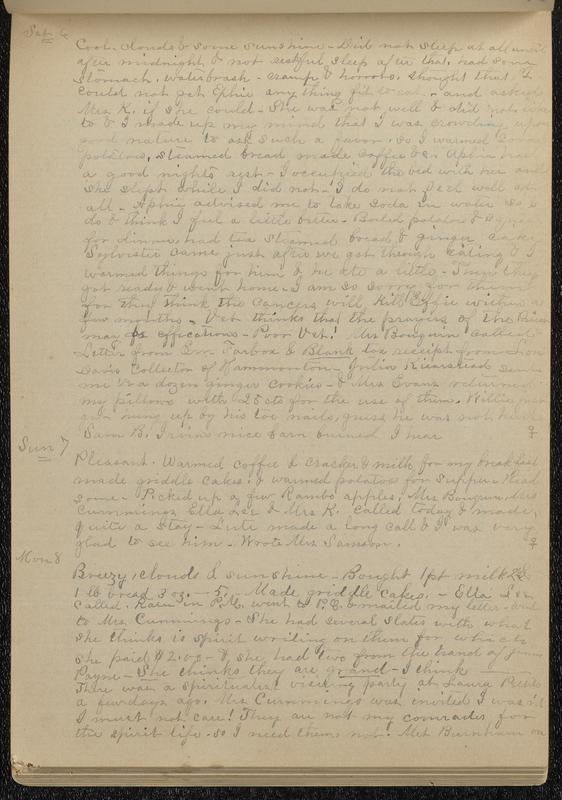 Sat 6
Cool. clouds & some sunshine - Did not sleep at all until
after midnight & not restful sleep after that, had sour
stomach, waterbrash - cramp & horrors. thought that I
could not get Ephie any thing fit to eat - and asked
Mrs K. if she could - She was not well & did not like
to & I made up my mind that I was crowding upon
good nature to ask such a favor. So I warmed some
potatoes, steamed bread made coffee &c. Ephie had
a good nights rest - I occupied the bed with her and
she slept while I did not - I do not feel well at
all - Aphie advised me to take Soda in water so I
do & think I feel a little better - Boiled potatoes &
for dinner, had tea steamed bread, & ginger cake
Sylvester came just after we got through eating & I
warmed things for him & he ate a little - Then they
got ready & went home - I am so sorry for them
for they think the cancers will kill Effie within a
few months - Vet thinks that the prayers of the
may be efficatious - Poor Vet! Mrs Bouquin called
Letter from Geo. Tarbox & Blank tax receipt from
Davis Collector of Hammonton - Julia sent
me 1/2 a dozen ginger cookies - & Mrs Evans returned
my pillows with 25 cts for the use of them. Willie
hung up by his toe nails, guess he was not hurt
Sam B. Irvins nice barn burned I hear
Sun 7
Pleasant. Warmed coffee & cracker & milk for my breakfast
made griddle cakes. & warmed potatoes for supper Read
some - Picked up a few Rambo apples. Mrs Bouquin, Mrs
Cummings Ella Lee & Mrs K. called today & made
quite a stay - Lute made a long call & I was very
glad to see him - Wrote Mrs Samson.
Mon 8
Breezy, clouds & sunshine - Bought 1 pt milk
1 lb bread 3 - 5. Made griddle cakes. - Ella Lee
called. Rain in P.M. went to P.O. & mailed my letter - went
to Mrs Cummings - She had several slates with what
she thinks is spirit writing on them for which
she paid $2.00 - & she had two from the hand of
Payne - She thinks they are grand - I think
There was a spiritualist visiting party at Laura
a few days ago. Mrs Cummings was invited I was n't
I must not care! They are not my comrades for
the spirit life - so I need them not! Mrs Burnham